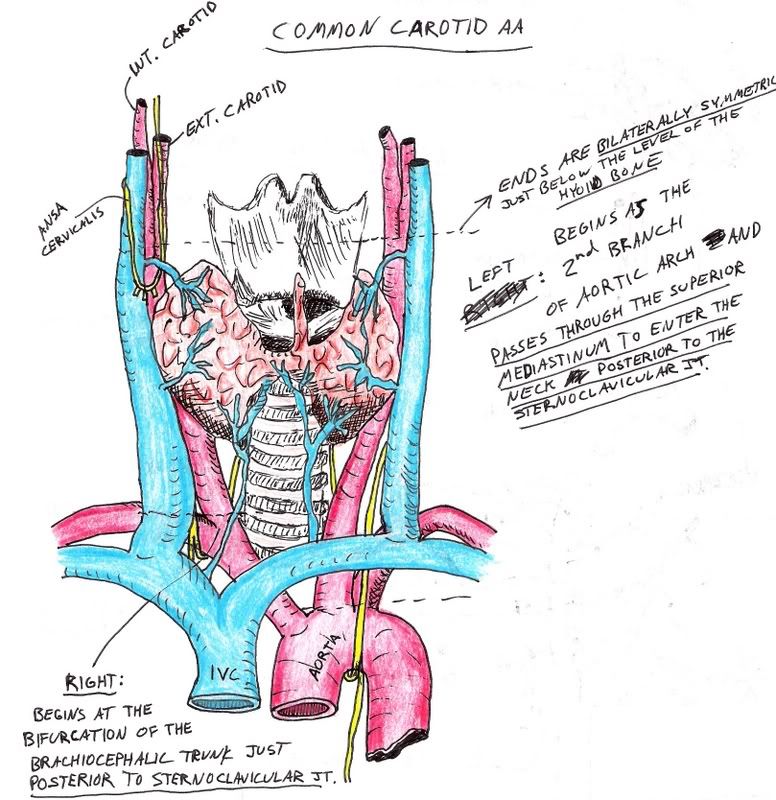 COMMON CAROTID AA
INT. CAROTID
EXT. CAROTID
ANSA
CERVICALIS
ENDS ARE BILATERALLY SYMMETRIC
JUST BELOW THE LEVEL OF THE
HYOID BONE
LEFT : BEGINS AS THE
2nd BRANCH
OF AORTIC ARCH AND
PASSES THROUGH THE SUPERIOR
MEDIASTINUM TO ENTER THE
NECK POSTERIOR TO THE
STERNOCLAVICULAR JT.
IVC
AORTA
RIGHT:
BEGINS AT THE
BIFURCATION OF THE
BRACHIOCEPHALIC TRUNK JUST
POSTERIOR TO STERNOCLAVICULAR JT.